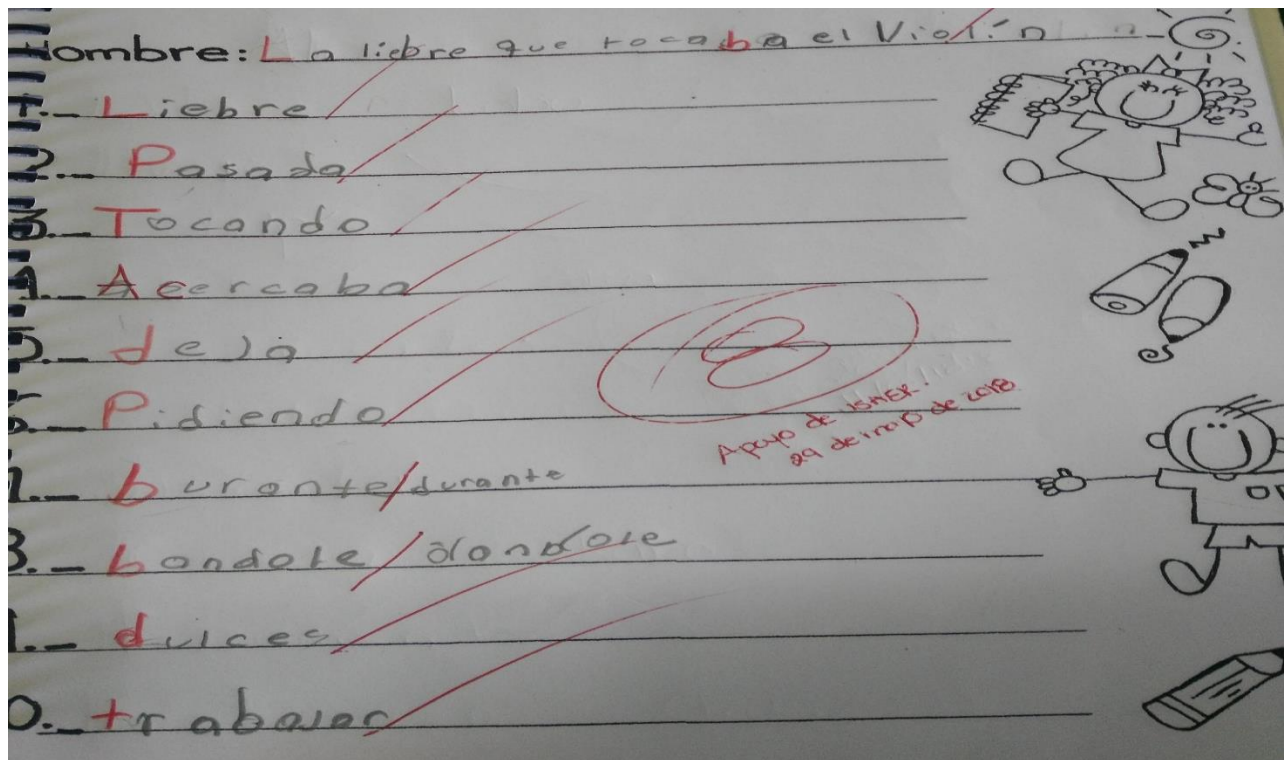 Nombre: La liebre que tocaba el Violín
1._ Liebre
2._ Pasada
3._ Tocando
4._ Acercaba
5._ dela
6._ Pidiendo
7._ burante/durante
8._ bandole/dandole
9._ dulces
0._ trabajar
8
Apoyo de
29 de mayo de 2018